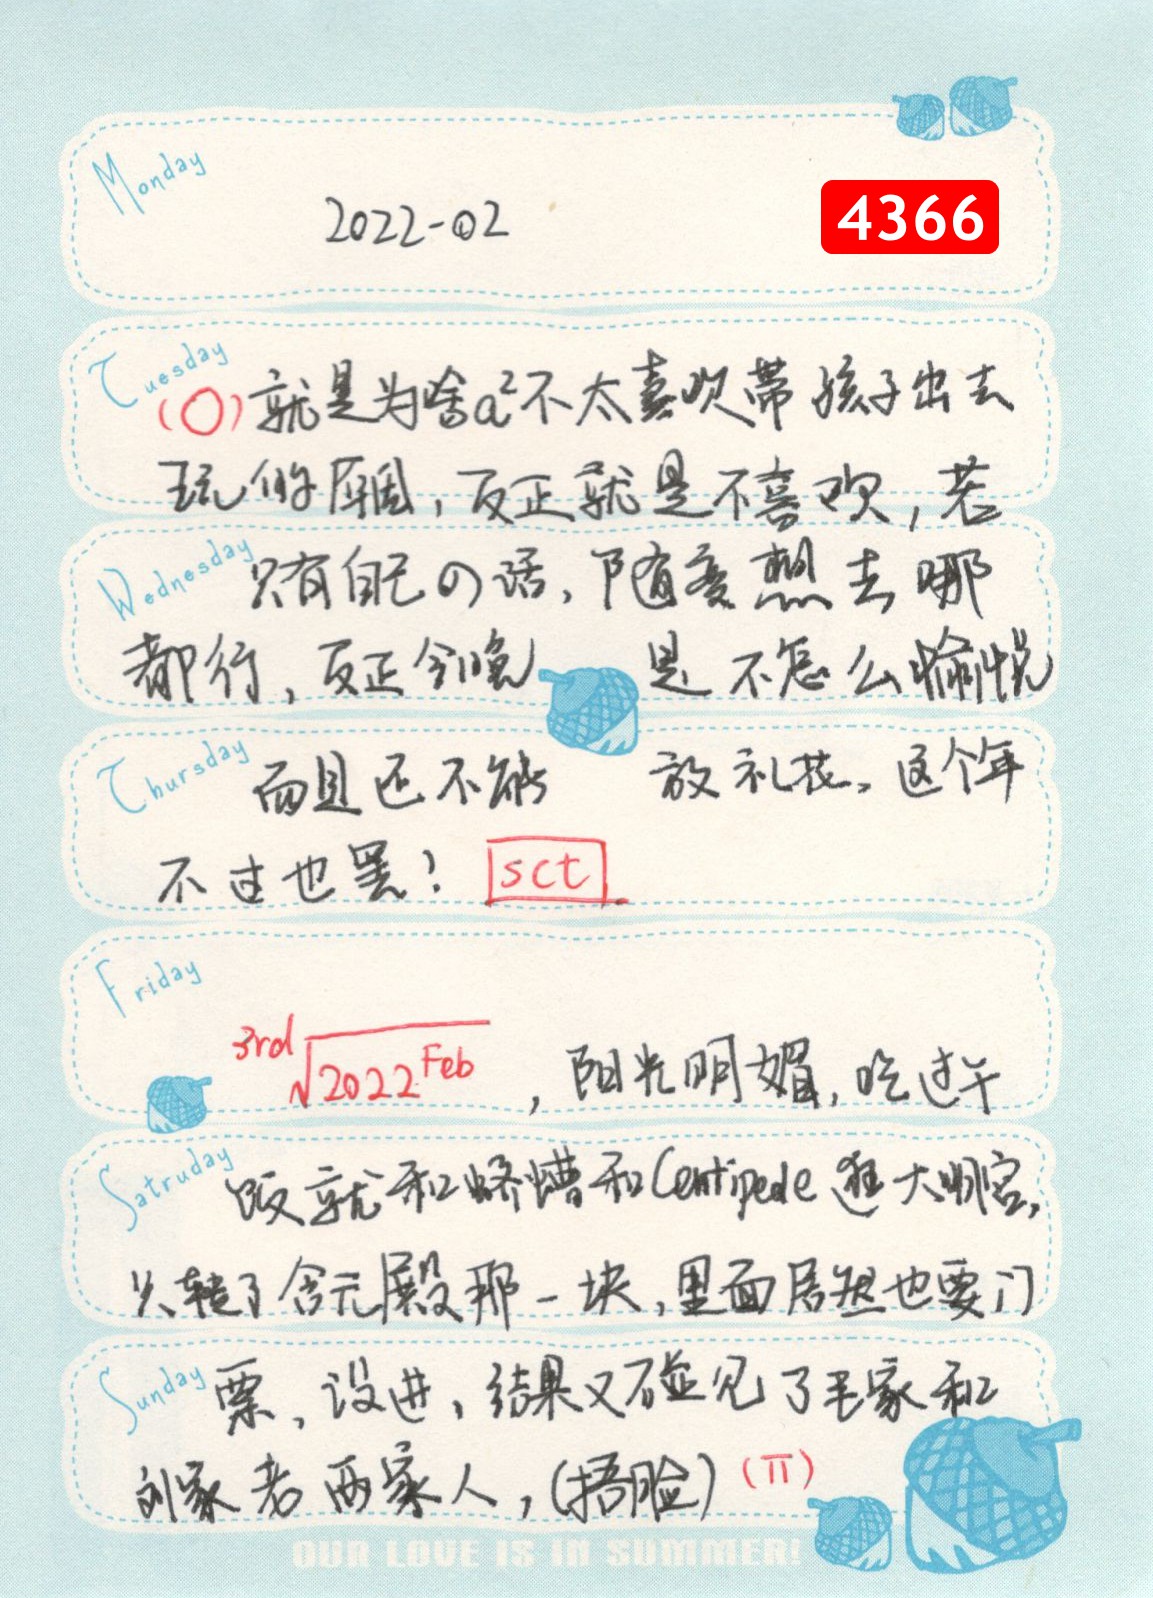 Monday
2022-02
4366
Tuesday
(○)就是为啥a²不太喜欢带孩子出去
玩的原因,反正就是不喜欢,若
Wednesday
只有自己の话,随变想去哪
都行,反正今晚是不怎么愉悦
Thursday
而且还不能放礼花。这个年
不过也罢? sct
Friday
3rd√2022Feb,阳光明媚,吃过午
Satruday
饭就和蛴螬和Centipede逛大明宫,
只转了含元殿那一块,里面居然也要门
Sunday
票,没进,结果又碰见了毛家和
刘家老两家人,(捂脸)(π)
OUR LOVE IS IN SUMMER!